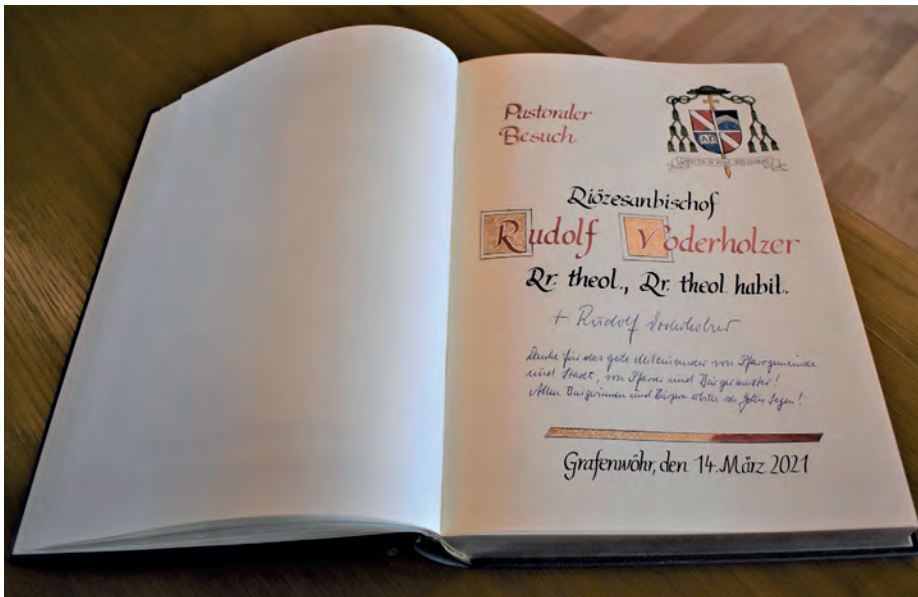 Pastoraler
Besuch
Diözesanbischof
Rudolf Voderholzer
Dr. theol., Dr. theol. habil.
+ Rudolf Voderholzer
Danke für das gute Miteinander von Pfarrgemeinde
und Stadt, von Pfarrer und Bürgermeister!
Allen Bürgerinnen und Bürgern erbitte ich Gottes Segen!
Grafenwöhr, den 14. März 2021